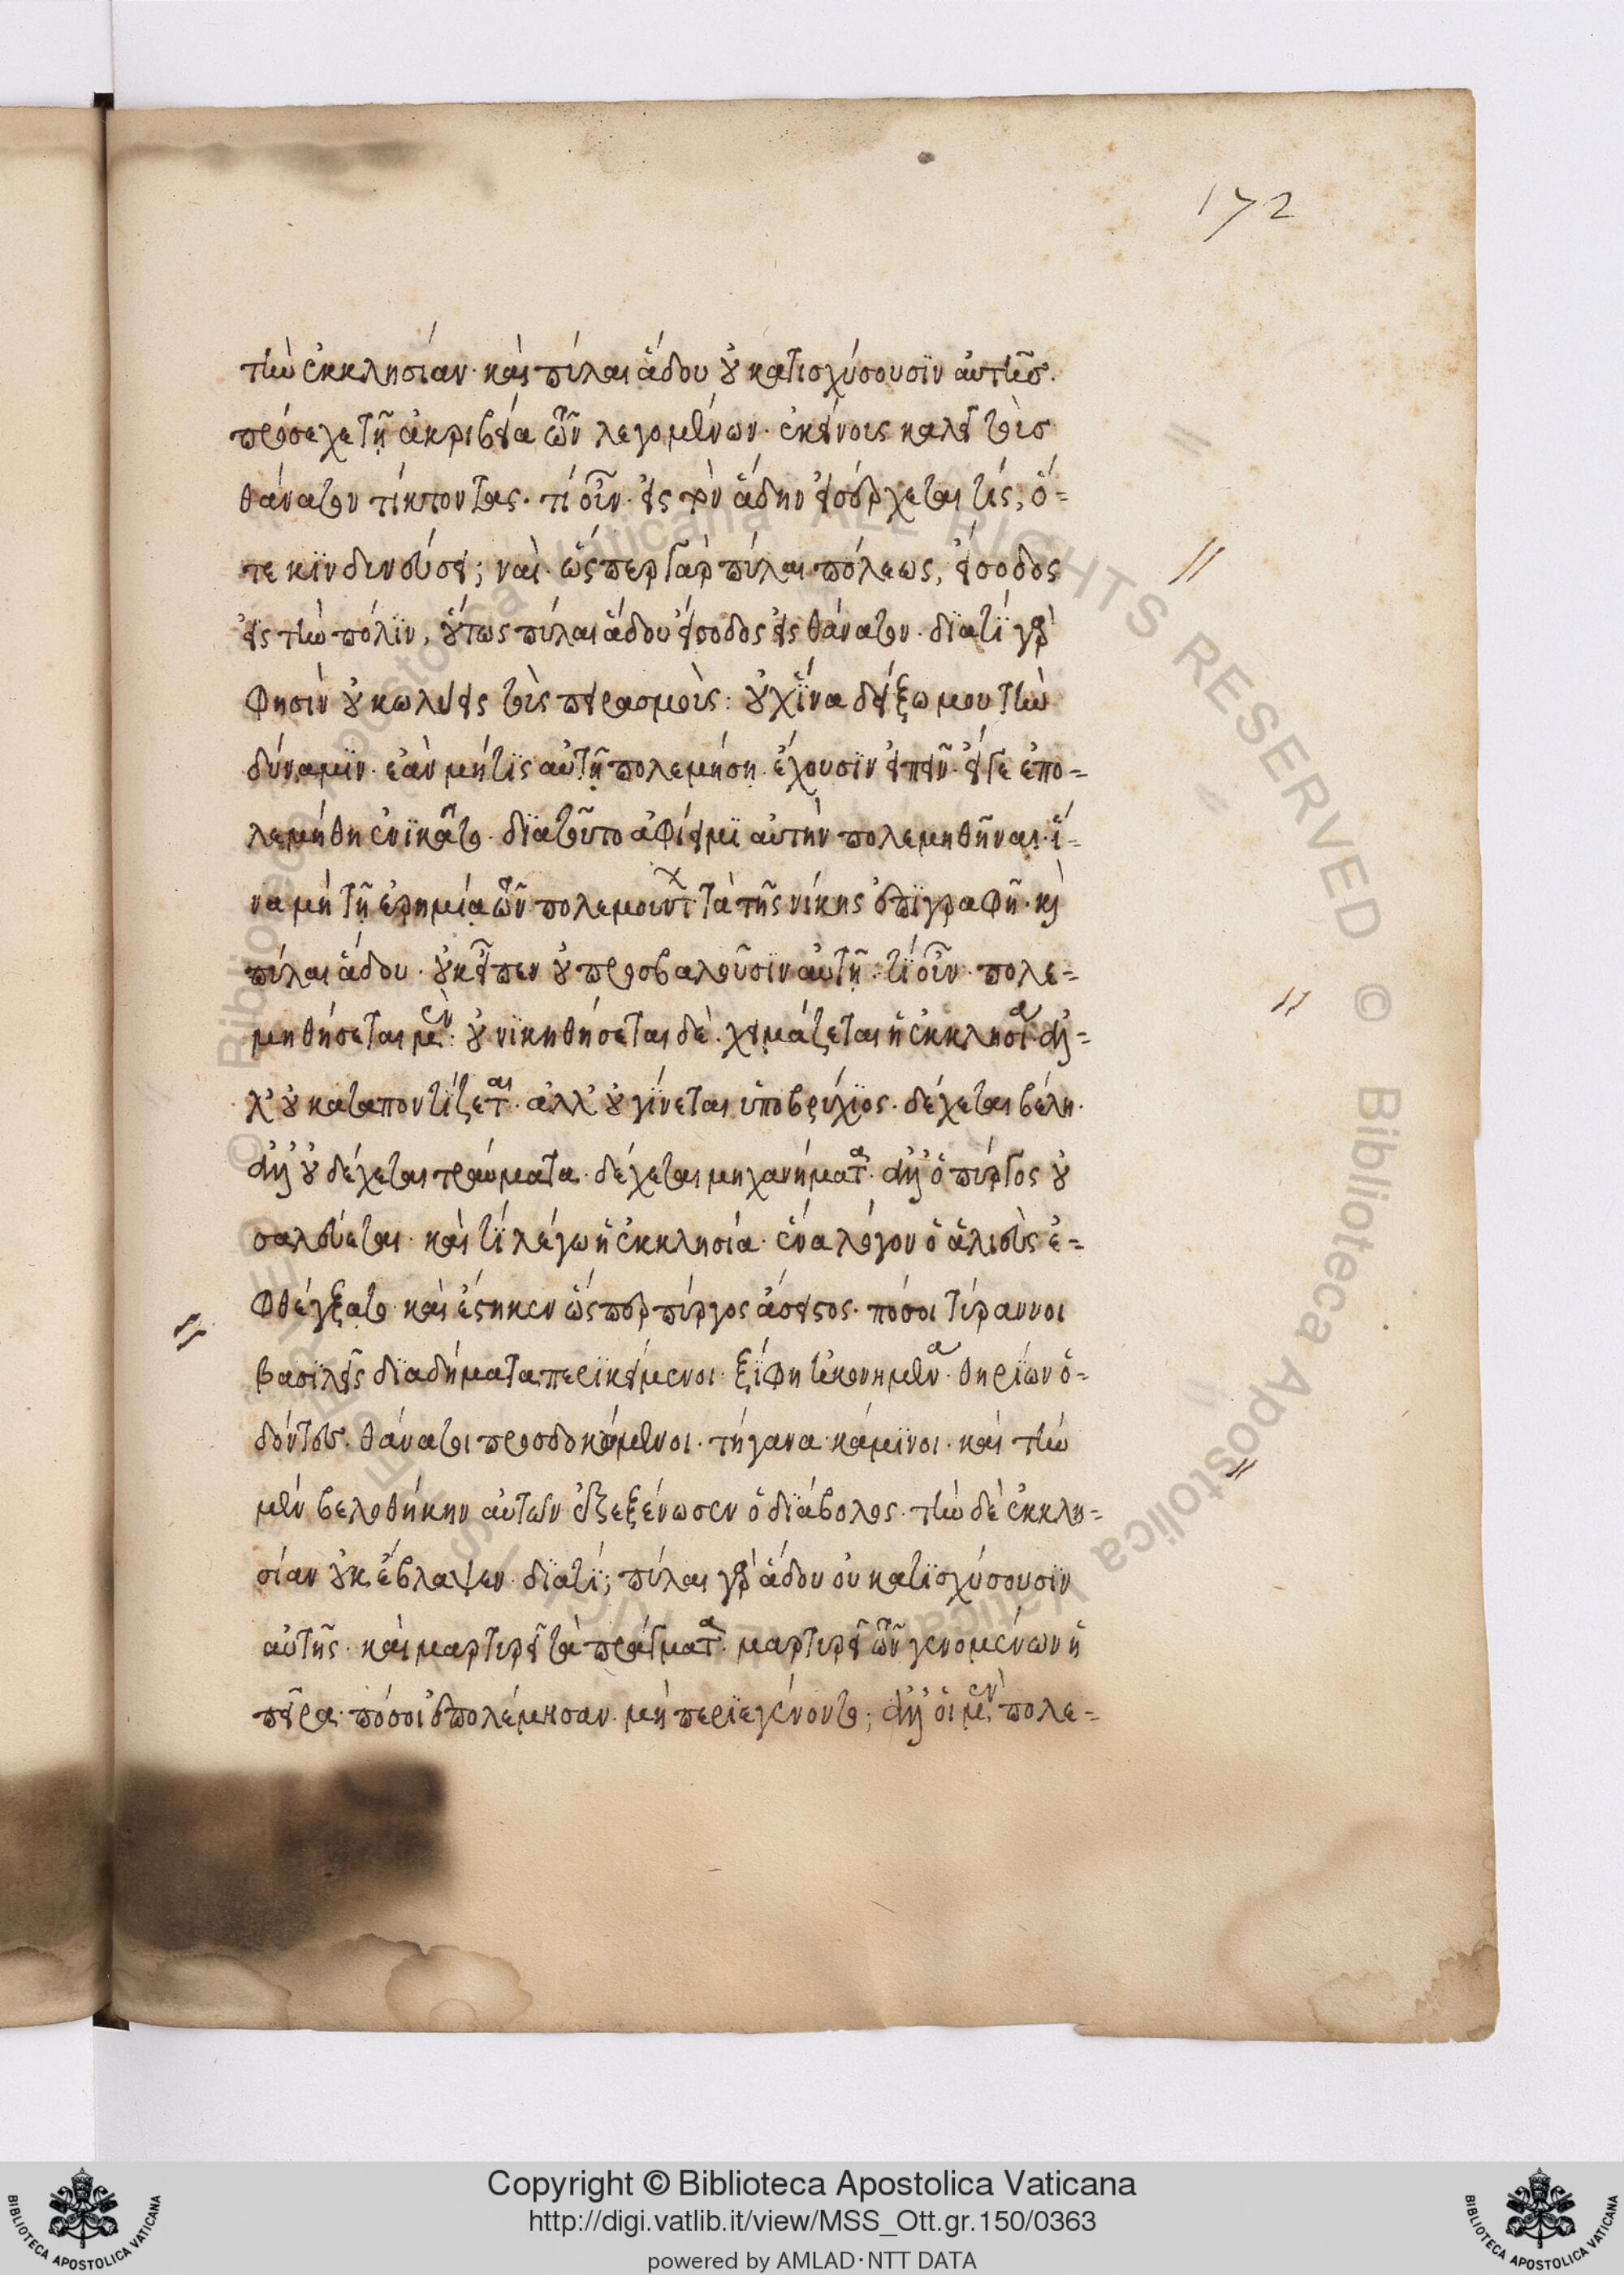 172
τὴν ἐκκλησίαν· καὶ πύλαι ἅδου οὐ κατισχύσουσϊν αὐτῆσ·
πρόσεχε τῇ ἀκριβεία τῶν λεγομένων· ἐκείνοις καλεῖ τοὺσ
θάνατον τίκτοντας· τί οὖν· εἰς τὸν ἅδην εἰσέρχεται τίς; ὅ-
τε κϊνδυνεύσει; ναὶ· ὥσπερ γὰρ πύλαι πόλεως, εἴσοδος
εἰς τὴν πόλϊν, οὕτως πύλαι ἅδου εἴσοδος εἰς θάνατον· δϊατί γὰρ
φησιν οὐ κωλύεις τοὺς πειρασμοὺς: οὐχ ἵνα δείξω μου τὴν
δύναμϊν· ἐὰν μή τϊς αὐτῇ πολεμήσῃ· ἔχουσϊν εἰπεῖν· εἴγε ἐπο-
λεμήθη ἐνϊκᾶτο· δϊατοῦτο ἀφίημϊ αὐτὴν πολεμηθῆναι· ἵ-
να μὴ τῇ ἐρημίᾳ τῶν πολεμούντ τὰ τῆς νίκης ἐπϊγραφῇ· κὶ
πύλαι ἅδου· οὐκ εἶπεν οὐ προσβαλοῦσϊν αὐτῇ· τί οὖν· πολε-
μηθήσεται μὲν· οὐ νϊκηθήσεται δὲ· χειμάζεται ἡ ἐκκλησία ἀλ-
λ' οὐ καταποντίζεται· ἀλλ' οὐ γίνεται ὑποβρύχϊος· δέχεται βέλη·
ἀλλ' οὐ δέχεται τραύματα· δέχεται μηχανήματα· ἀλλ' ὁ πύργος οὐ
σαλεύεται· καὶ τί λέγω ἡ ἐκκλησία· ἕνα λόγον ὁ ἁλιεὺς ἐ-
φθέγξατο· καὶ ἕστηκεν ὥσπερ πύργος ἄσειστος· πόσοι τύραννοι
βασϊλεῖς δϊαδήματα περϊκείμενοι· ξίφη ἠκονημένα· θηρίων ὀ-
δόντες· θάνατοι προσδοκώμενοι· τήγανα· κάμϊνοι· καὶ τὴν
μὲν βελοθήκην αὐτῶν ἐξεξένωσεν ὁ δϊάβολος· τὴν δὲ ἐκκλη-
σίαν οὐκ ἔβλαψεν· δϊατί; πύλαι γὰρ ἅδου οὐ κατϊσχύσουσϊν
αὐτῆς· καὶ μαρτυρεῖ τὰ πράγματα· μαρτυρεῖ τῶν γενομένων ἡ
πεῖρα· πόσοι ἐπολέμησαν· μὴ περϊεγένοντο; ἀλλ' οἱ μὲν πολε-
© Biblioteca Apostolica Vaticana ALL RIGHTS RESERVED
Copyright © Biblioteca Apostolica Vaticana
http://digi.vatlib.it/view/MSS_Ott.gr.150/0363
powered by AMLAD·NTT DATA
BIBLIOTECA APOSTOLICA VATICANA
BIBLIOTECA APOSTOLICA VATICANA